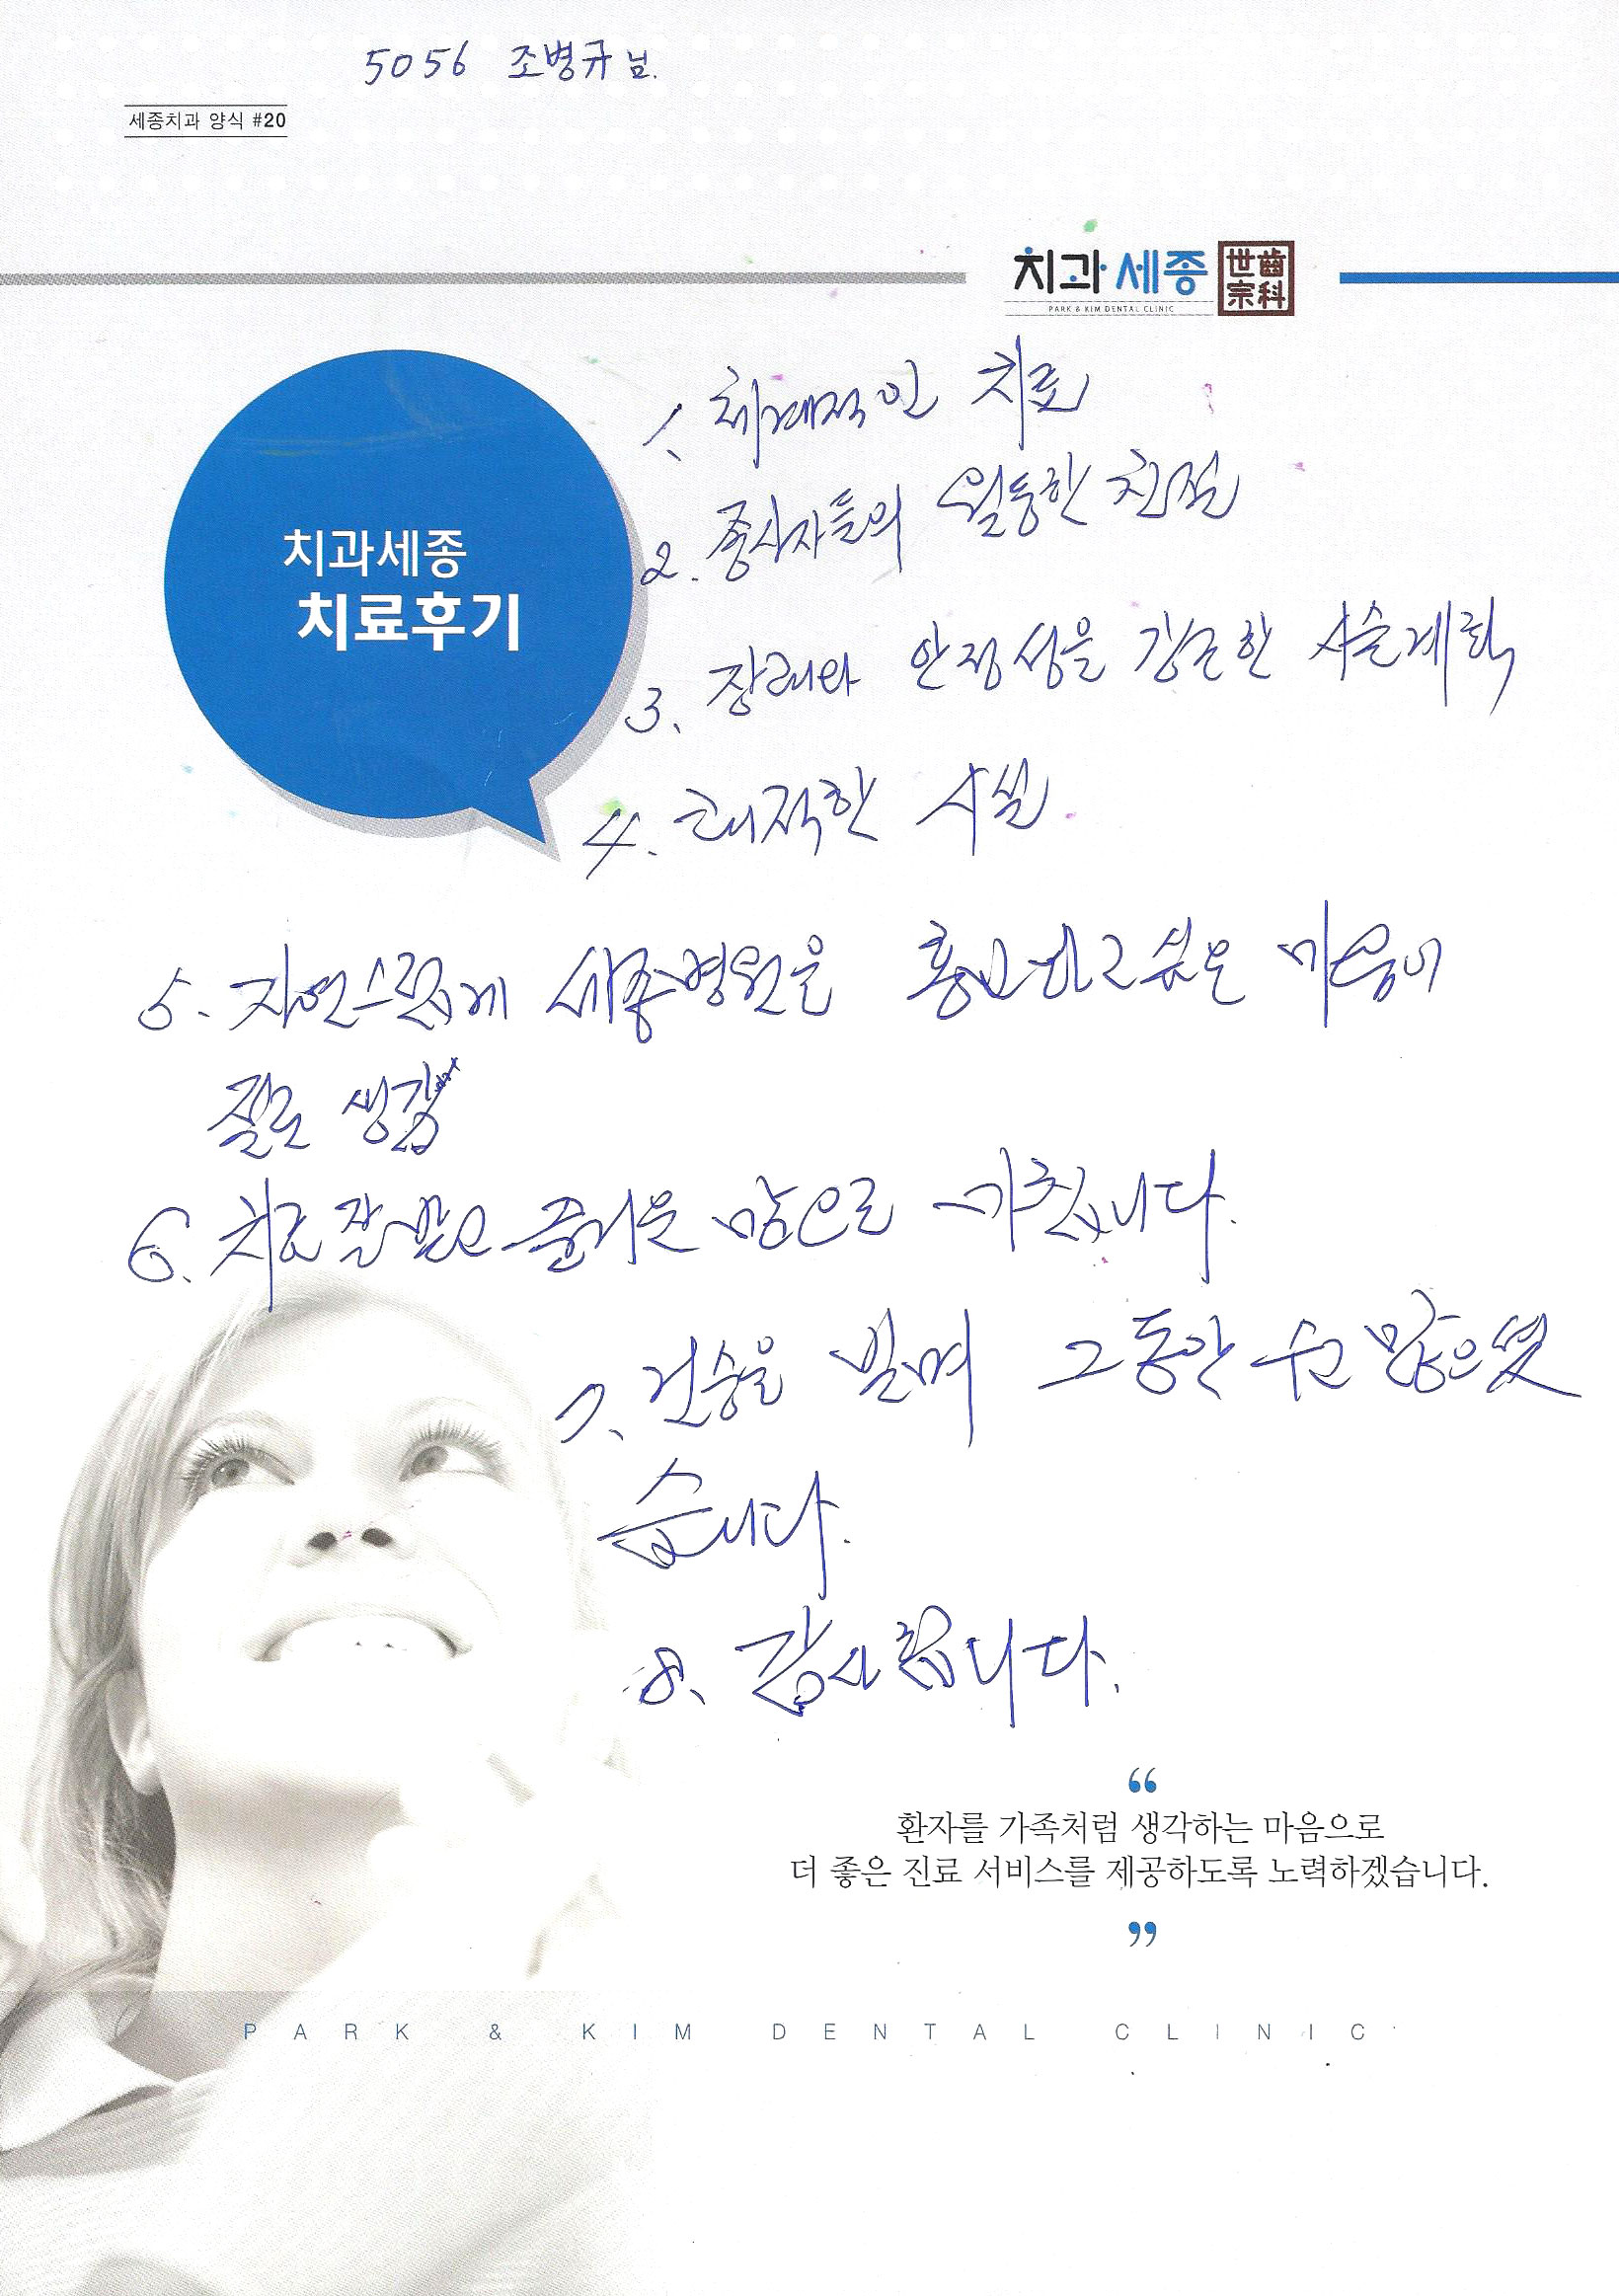 5056 조병규님.
세종치과 양식 #20
치과세종 世齒宗科
PARK & KIM DENTAL CLINIC
치과세종
치료후기
1. 체계적인 치료
2. 종사자들의 월등한 친절
3. 장래와 안정성을 강조한 시술계획
4. 쾌적한 시설
5. 자연스럽게 세종병원을 홍보하고 싶은 마음이
절로 생김
6. 치료 잘 받고 즐거운 맘으로 마칩니다.
7. 건승을 빌며 그동안 수고 많으셨
습니다.
8. 감사합니다.
“
환자를 가족처럼 생각하는 마음으로
더 좋은 진료 서비스를 제공하도록 노력하겠습니다.
”
PARK & KIM DENTAL CLINIC